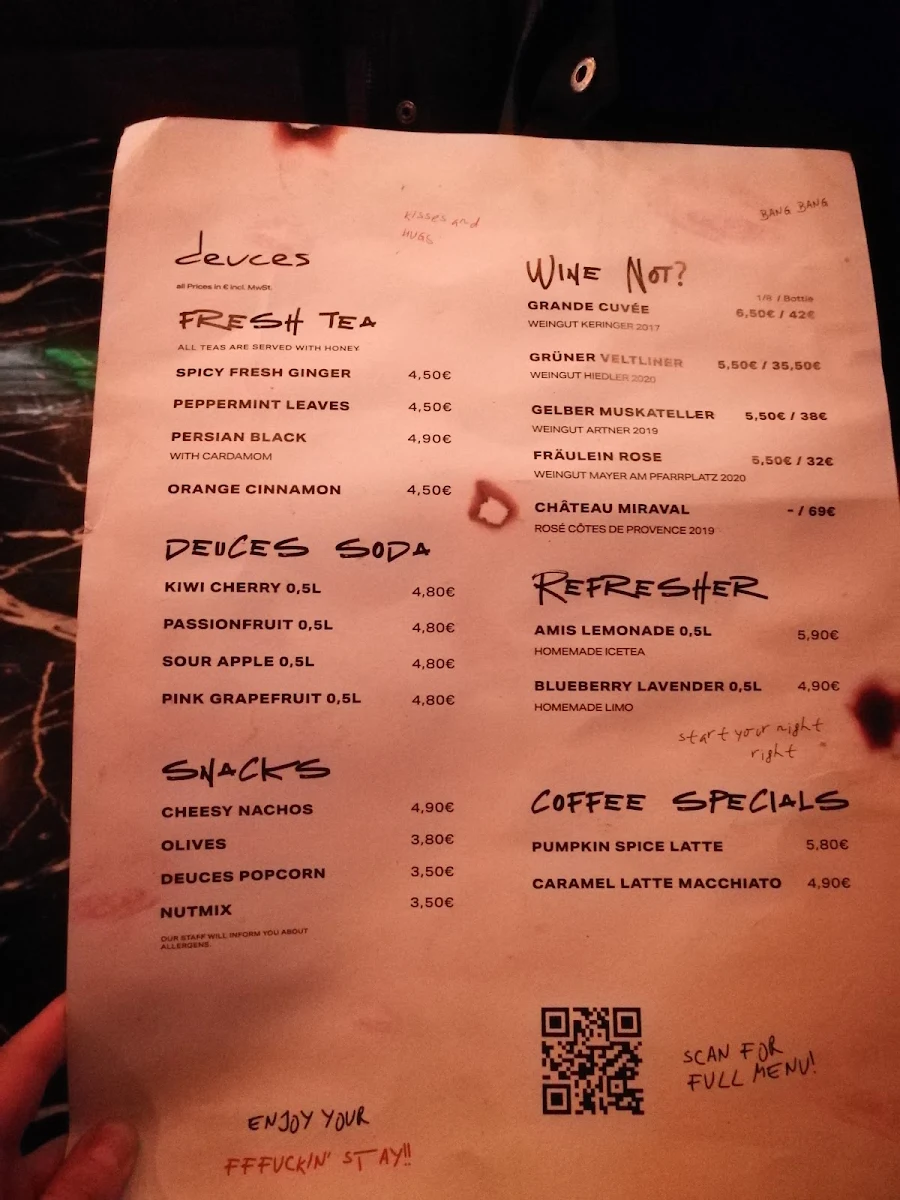 kisses and
HUGS
BANG BANG
deuces
all Prices in € incl. MwSt.
FRESH TEA
ALL TEAS ARE SERVED WITH HONEY
SPICY FRESH GINGER 4,50€
PEPPERMINT LEAVES 4,50€
PERSIAN BLACK 4,90€
WITH CARDAMOM
ORANGE CINNAMON 4,50€
DEUCES SODA
KIWI CHERRY 0,5L 4,80€
PASSIONFRUIT 0,5L 4,80€
SOUR APPLE 0,5L 4,80€
PINK GRAPEFRUIT 0,5L 4,80€
SNACKS
CHEESY NACHOS 4,90€
OLIVES 3,80€
DEUCES POPCORN 3,50€
NUTMIX 3,50€
OUR STAFF WILL INFORM YOU ABOUT
ALLERGENS.
WINE NOT?
1/8 / Bottle
GRANDE CUVÉE 6,50€ / 42€
WEINGUT KERINGER 2017
GRÜNER VELTLINER 5,50€ / 35,50€
WEINGUT HIEDLER 2020
GELBER MUSKATELLER 5,50€ / 38€
WEINGUT ARTNER 2019
FRÄULEIN ROSE 5,50€ / 32€
WEINGUT MAYER AM PFARRPLATZ 2020
CHÂTEAU MIRAVAL - / 69€
ROSÉ CÔTES DE PROVENCE 2019
REFRESHER
AMIS LEMONADE 0,5L 5,90€
HOMEMADE ICETEA
BLUEBERRY LAVENDER 0,5L 4,90€
HOMEMADE LIMO
start your night
right
COFFEE SPECIALS
PUMPKIN SPICE LATTE 5,80€
CARAMEL LATTE MACCHIATO 4,90€
SCAN FOR
FULL MENU!
ENJOY YOUR
FFFUCKIN' STAY!!